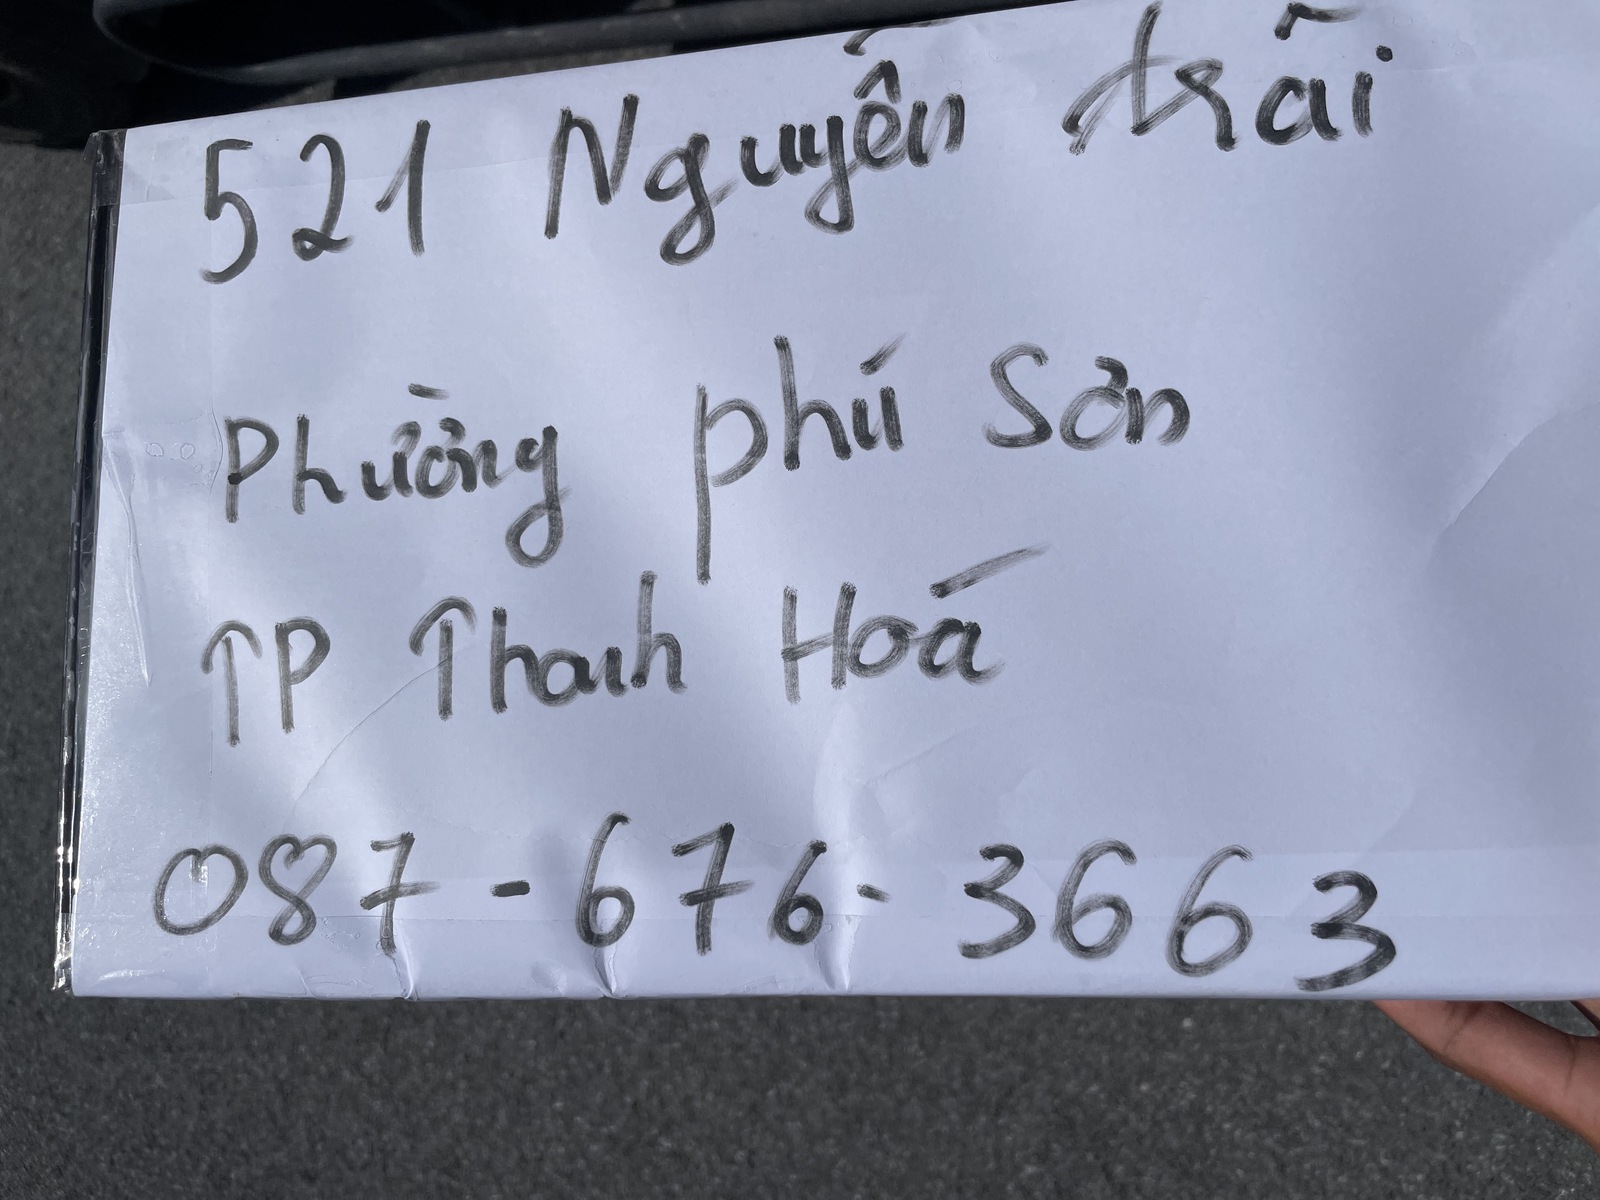 521 Nguyễn trãi
Phường phú Sơn
TP Thanh Hoá
087-676-3663